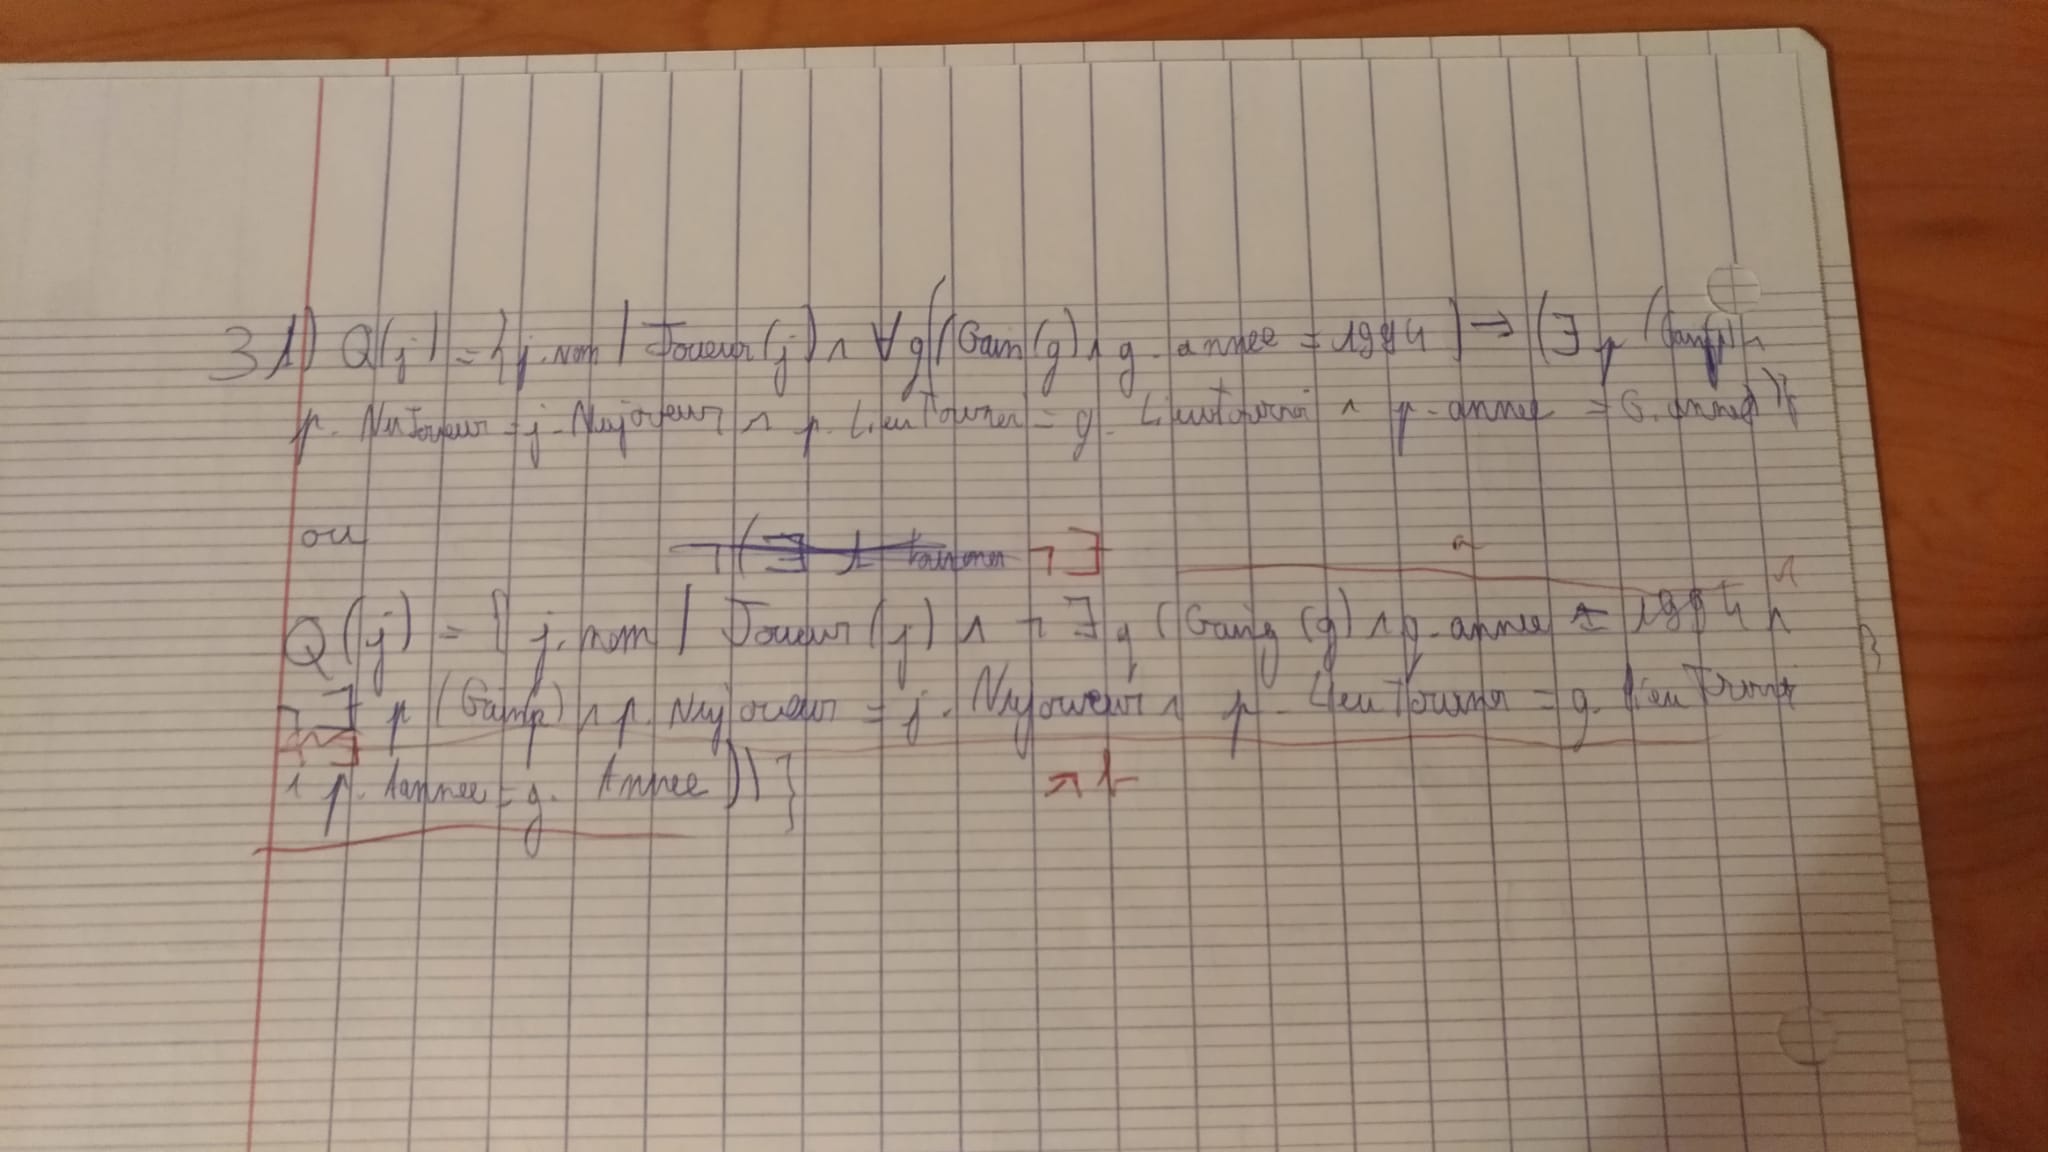 31) Q(j) = { j.nom | Joueur(j) ∧ ∀g((Gain(g) ∧ g.annee = 1994) → (∃p (Gain(p) ∧
p.NuJoueur = j.Nujoueur ∧ p.LieuTournoi = g.Lieutournoi ∧ p.annee = G.annee))}
ou
¬(∃ ¬∃ a ∧
Q(j) = { j.nom | Joueur(j) ∧ ¬∃g (Gain(g) ∧ g.annee = 1994 ∧
¬∃ p (Gain(p) ∧ p.Nujoueur = j.Nujoueur ∧ p.LieuTournoi = g.lieuTournoi
∧ p.Aannee = g.Annee))}